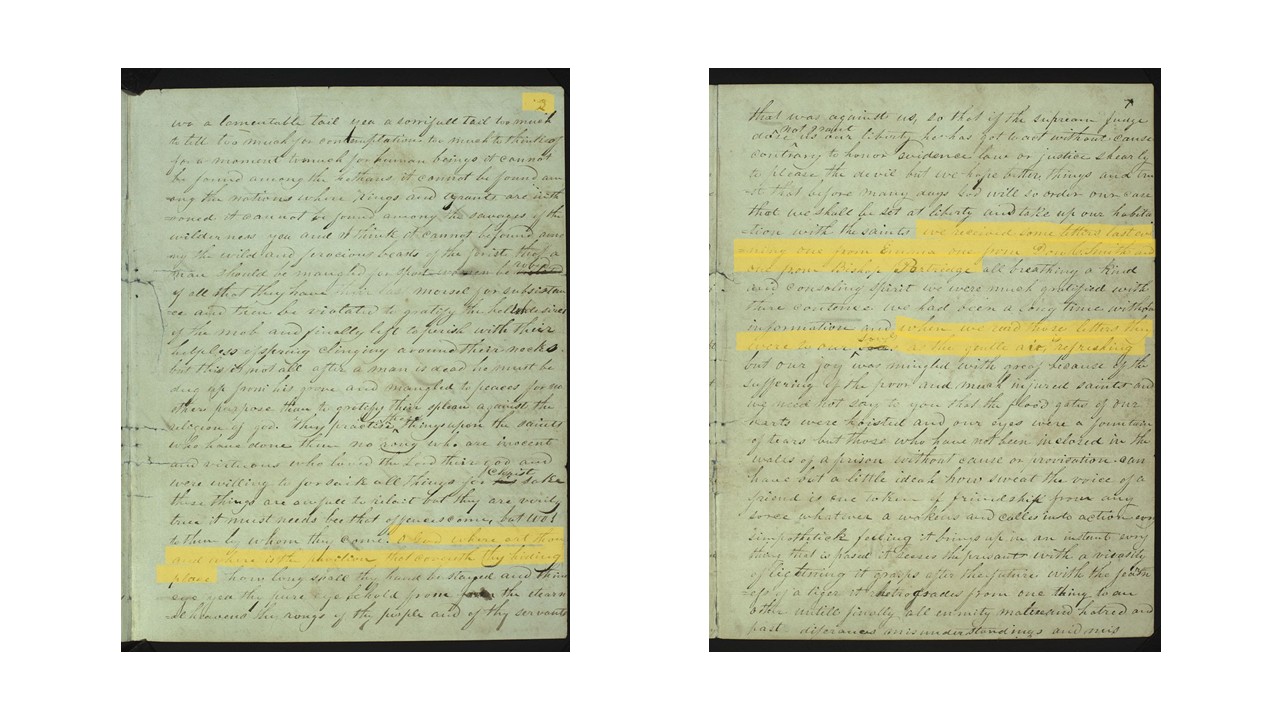 2
we a lamentable tail yea a sorrifull tail too much
to tell too much for contemplation too much to think of
for a moment to much for human beings it cannot
be found among the hethans it cannot be found am
ong the nations where Kings and tyrants are inth
roned it cannot be found among the savages of the
wilderness yea and I think it cannot be found amo
ng the wild and ferocious beasts of the forist that a
man should be mangled for sport women be robed
of all that they have their last morsel for subsistan
ce and then be violated to gratify the hellish desires
of the mob and finally left to perish with their
helpless ofspring clinging around their necks
but this is not all after a man is dead he must be
dug up from his grave and mangled to peaces for no
other purpose than to gratify their splean against the
religeon of god. They practise these things upon the saints
who have done them no rong who are inocent
and virtuous who loved the Lord their god and
were willing to forsaik all things for Christ sake
these things are awfull to relait but they are verily
true it must needs bee that offences come, but WO!
to them by whom they come. O God where art thou
and where is the pavilion that covereth thy hiding
place how long shall thy hand be stayed and thine
eye yea thy pure eye behold from the etearn
al heavens the rongs of thy people and of thy servants
7
that was against us, so that if the supreme judge
dose not grant us our liberty, he has got to act without cause
contrary to honor evidence law or justice shearly
to please the devil but we hope better things and tru
st that before many days God will so order our case
that we shall be set at liberty and take up our habita
tion with the saints we received some letters last ev
ening one from Emma one from Don C Smith and
one from Bishop Partridge all breathing a kind
and consoling spirit we were much gratified with
there contence we had been a long time without
information and when we read those letters they
were to our soles as the gentle air, is refreshing
but our joy was mingled with greaf because of the
suffering of the poor and much injured saints and
we need not say to you that the flood gates of our
harts were hoisted and our eyes were a fountain
of tears but those who have not been inclosed in the
walls of a prison without cause or provication can
have but a little ideah how sweat the voice of a
friend is one token of friendship from any
sorce whatever awakens and calles into action evry
simpothetick feeling it brings up in an instent evry
thing that is pased it seses the presant with a vivacity
of lightning it grasps after the future with the fearc
ness of a tiger it retrogrades from one thing to an
other untill finally all enmity malice and hatred and
past diferances misunderstandings and mis